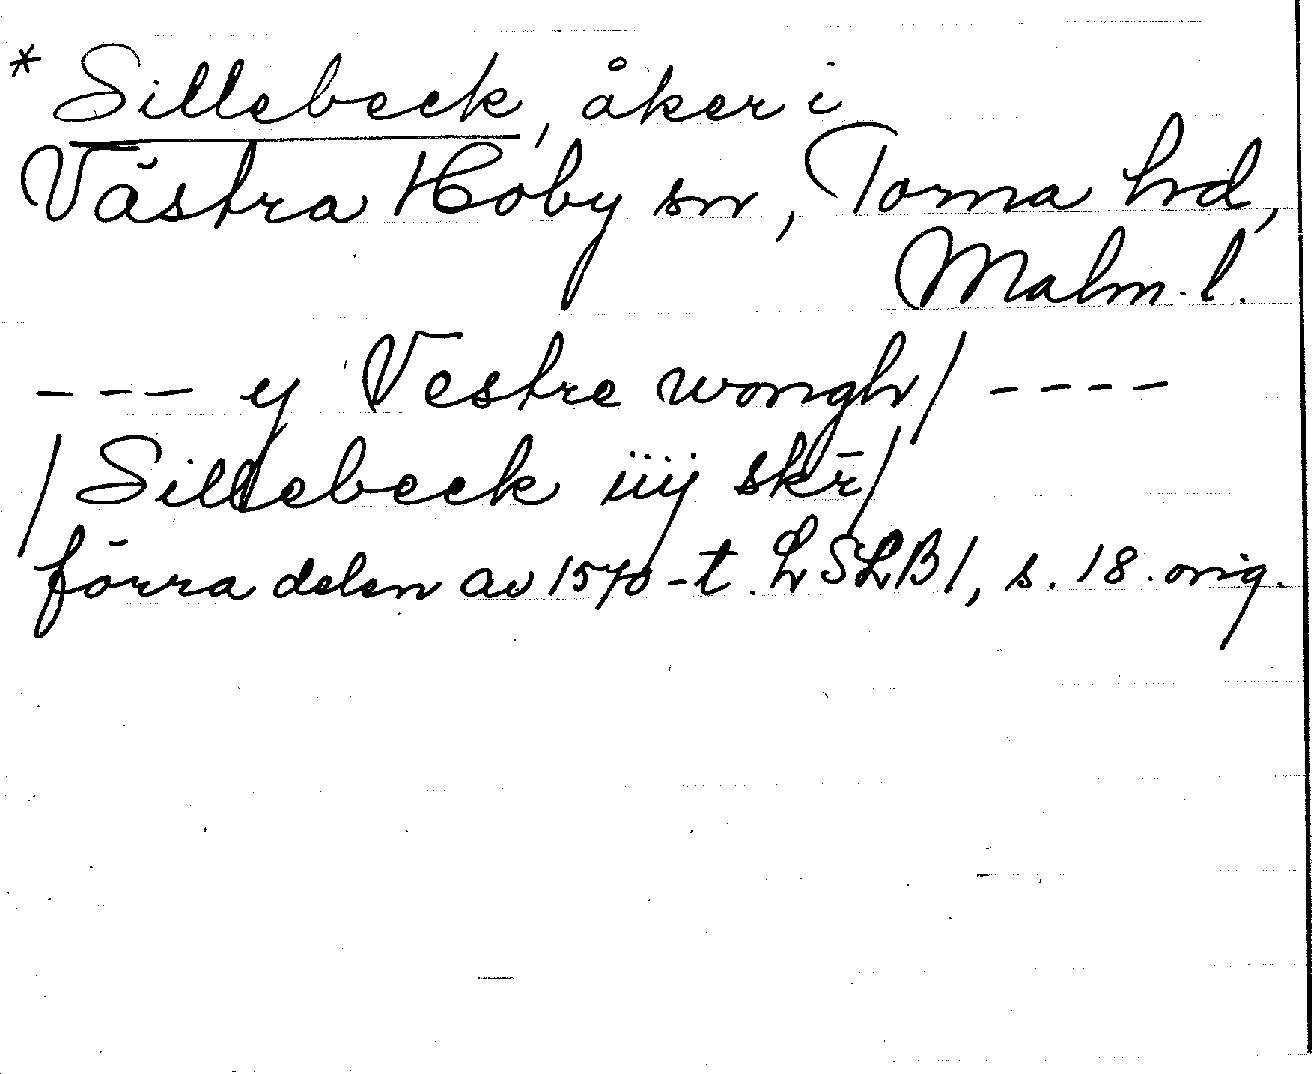 * Sillebeck, åker i
Västra Hoby sn, Torna hrd,
Malm. l.
--- y Vestre wongh/ ----
/Sillebeck iiij skr̄/
förra delen av 1570-t. LSLB1, s. 18. orig.